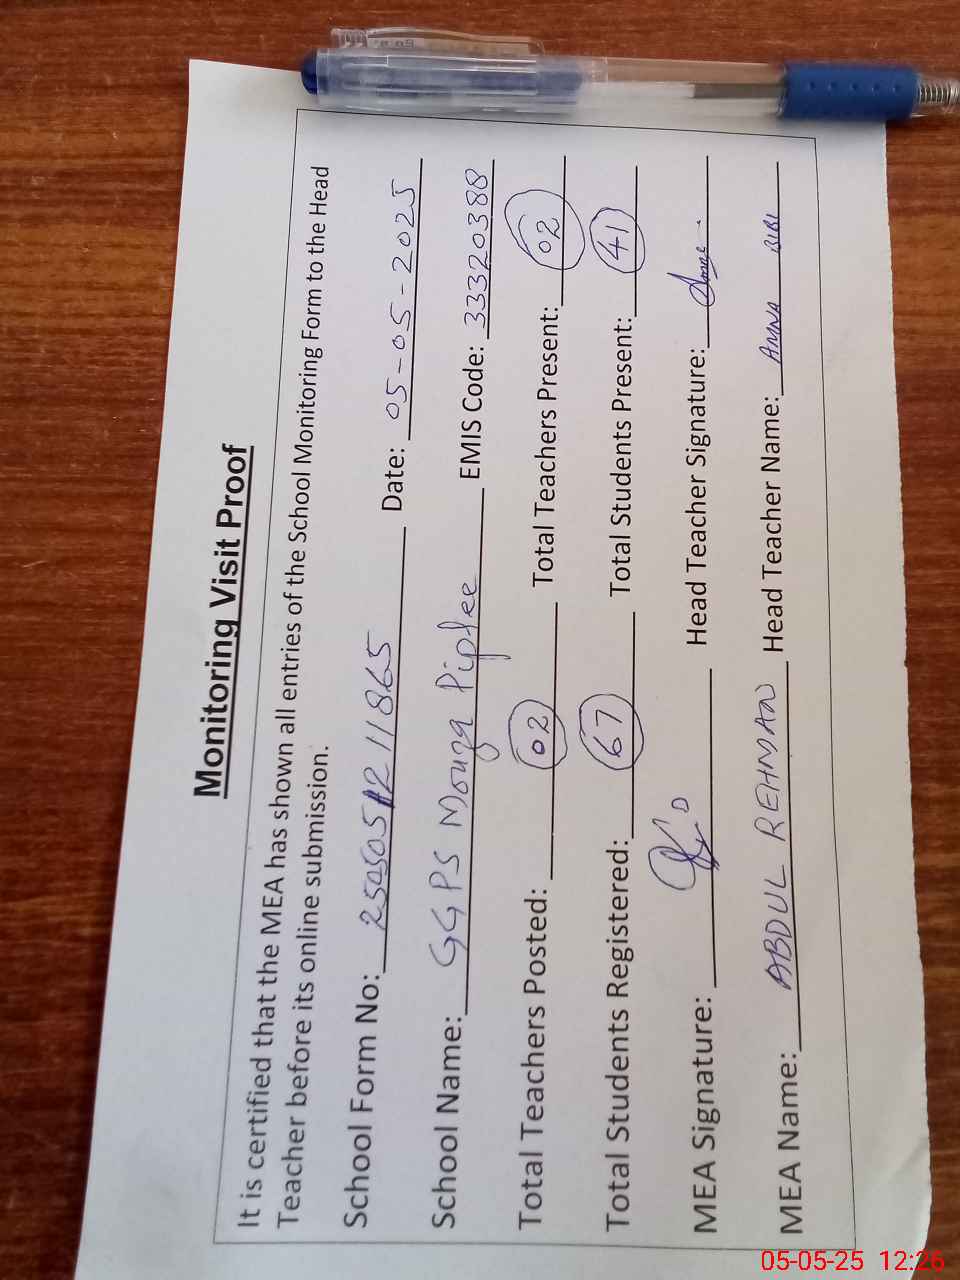 Monitoring Visit Proof
It is certified that the MEA has shown all entries of the School Monitoring Form to the Head
Teacher before its online submission.
School Form No: 2505051211865 Date: 05-05-2025
School Name: GGPS Mouza Piplee EMIS Code: 33320388
Total Teachers Posted: 02 Total Teachers Present: 02
Total Students Registered: 67 Total Students Present: 41
MEA Signature: Head Teacher Signature:
MEA Name: ABDUL REHMAN Head Teacher Name: AMNA BIBI
05-05-25 12:26